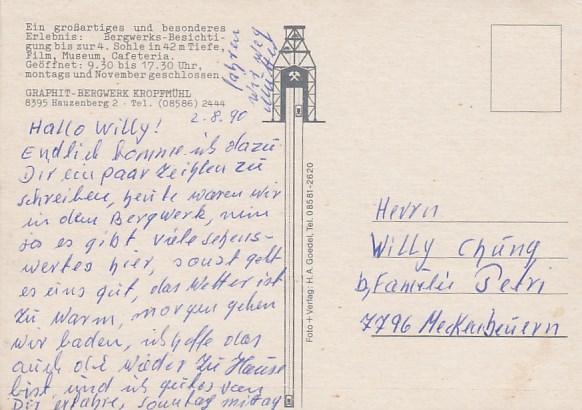 Ein großartiges und besonderes
Erlebnis: Bergwerks-Besichti-
gung bis zur 4. Sohle in 42 m Tiefe,
Film, Museum, Cafeteria.
Geöffnet: 9.30 bis 17.30 Uhr,
montags und November geschlossen
GRAPHIT-BERGWERK KROPFMÜHL
8395 Hauzenberg 2 · Tel. (08586) 2444
2.8.90
Hallo Willy!
Endlich komme ich dazu
Dir ein paar Zeihlen zu
schreiben, heute waren wir
in dem Bergwerk, nun
ja es gibt viele sehens-
wertes hier, sonst geht
es uns gut, das Wetter ist
zu warm, morgen gehen
wir baden, ich hoffe das
auch du wieder zu Hause
bist und ich gutes von
Dir erfahre, sonntag mittag
fahren
wir weg
Foto + Verlag: H. A. Goedel, Tel. 08581-2620
Herrn
Willy Chung
b, Familie Petri
7796 Meckenbeuern